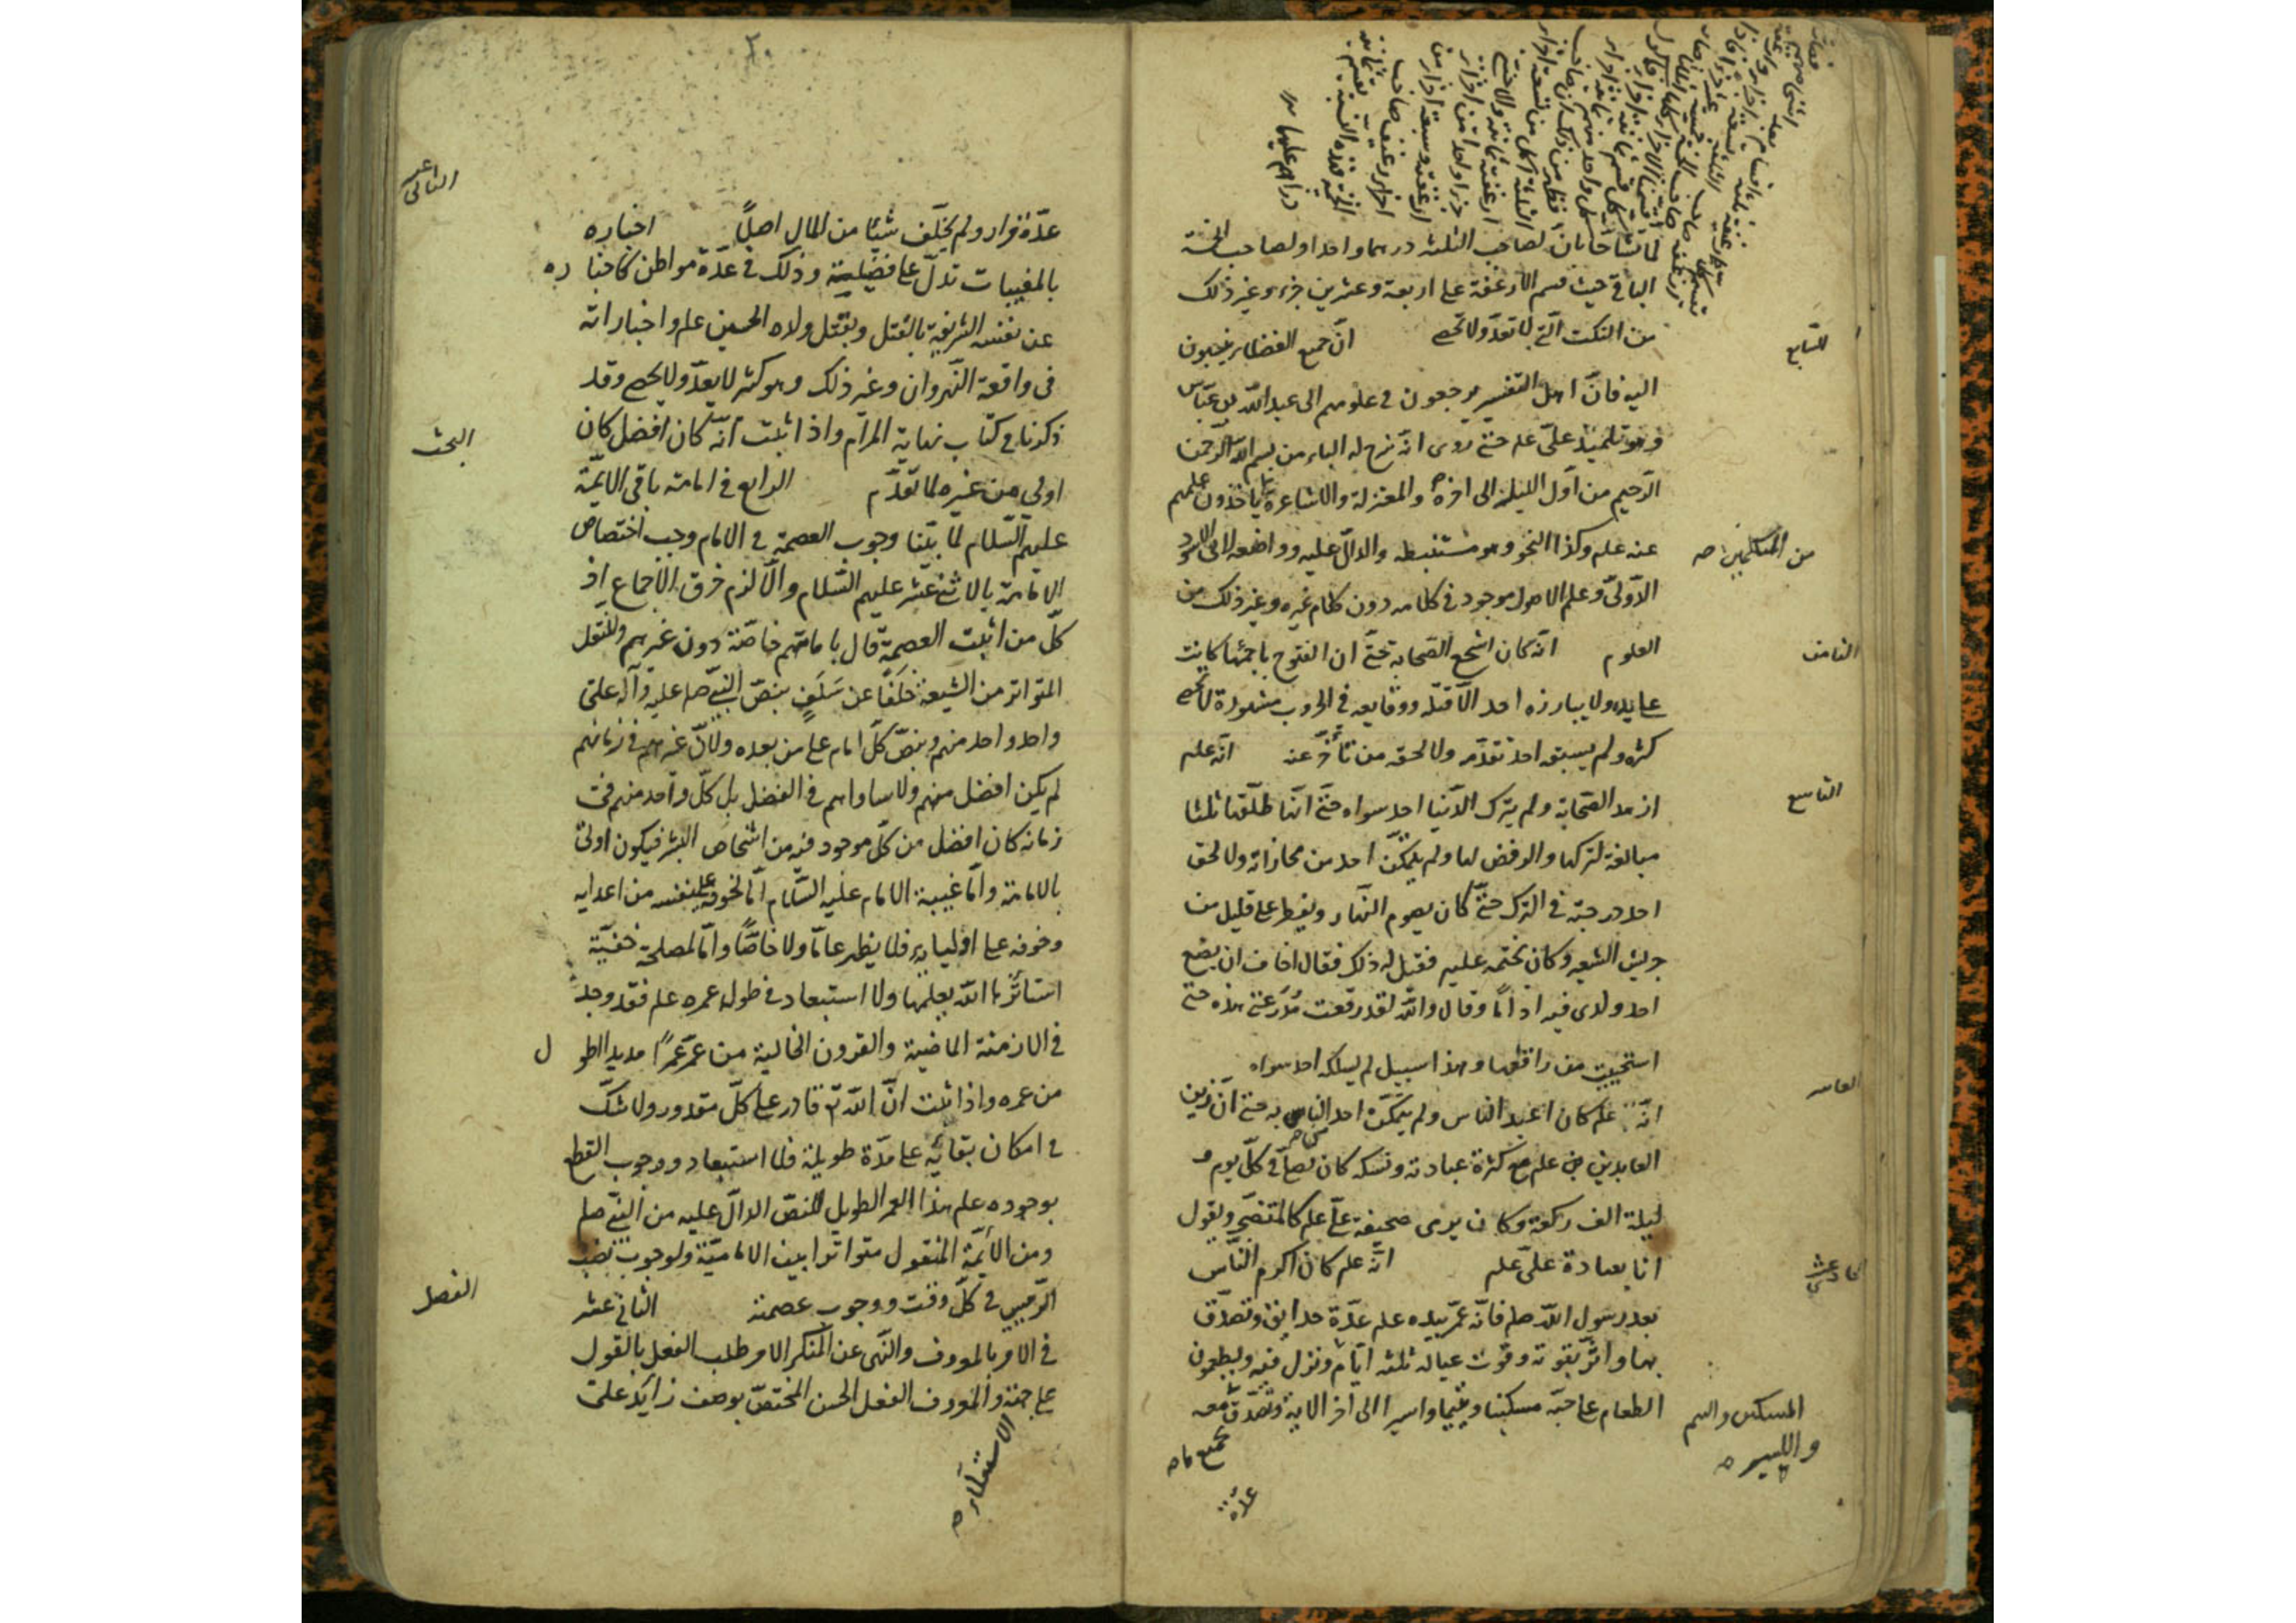 لما تشاحا بان لصاحب الثلثة درهما واحدا ولصاحب الخمسة
الباقي حيث قسم الارغفة على اربعة وعشرين جزء وغير ذلك
من النكت الّتي لا تعدّ ولا تحصى انّ جميع الفضلاء ينتسبون
السابع
اليه فانّ اهل التفسير يرجعون في علومهم الى عبد اللّه بن عبّاس
وهو تلميذ علىّ علم حتى روى انّه شرح له الباء من بسم اللّه الرّحمن
الرّحيم من اوّل الليلة الى آخره والمعتزلة والاشاعرة ياخذون علمهم
عنه علم وكذا النحو وهو مستنبطه والدالّ عليه وواضعه لابى الاسود
من المتكلمين صح
الدّولىّ وعلم الاصول موجود في كلامه دون كلام غيره وغير ذلك من
العلوم انّه كان اشجع الصّحابة حتّى ان الفتوح باجمعها كانت
الثامن
على يده ولا يبارزه احد الّا قتله ووقايعه في الحروب مشهورة لا تحصى
كثرة ولم يسبقه احد تقدّمه ولا لحقه من تأخّر عنه انّه علم
ازهد الصّحابة ولم يترك الدّنيا احد سواه حتّى انّه طلّقها ثلثا
التاسع
مبالغة لتركها والرفض لها ولم يتمكّن احد من مجازاته ولا لحق
احد درجته في الترك حتّى كان يصوم النّهار ويفطر على قليل من
جريش الشعير وكان يختمه عليه فقيل له ذلك فقال اخاف ان يضع
احد ولدى فيه اداما وقال واللّه لقد رقعت مدرعتى هذه حتى
استحييت من راقعها وهذا سبيل لم يسلكه احد سواه
العاشر
انّه علم كان اعبد الناس ولم يتمكّن احد الناسى به حتى انّ زين
العابدين علم مع كثرة عبادته ونسكه كان يصلى في كلّ يوم و
ليلة الف ركعة وكان يرمى صحيفة علىّ علم كالمتضجّر ويقول
انا بعبادة علىّ علم انّه علم كان اكرم النّاس
الحادي عشر
بعد رسول اللّه صلم فانّه عمّر بيده علم عدّة حدايق وتصدّق
بها واثر بقوته وقوت عياله ثلثة ايّام ونزل فيه ويطعمون
الطعام على حبّه مسكينا ويتيما واسيرا الى آخر الاية وتصدّق
المسكين واليتيم
والاسير صح
بجميع ماله
عدّة
عدّة مرار ولم يخلّف شيئا من المال اصلًا اخباره
الثانى عشر
بالمغيبات تدلّ على افضليته وذلك في عدّة مواطن كاخباره
عن نفسه الشريفة بالقتل وبقتل ولده الحسين علم واخباراته
في واقعة النّهروان وغير ذلك وهو كثير لا يعدّ ولا يحصى وقد
ذكرنا في كتاب نهاية المرام واذا ثبت انّه كان افضل كان
البحث
اولى من غيره لما تقدّم الرابع في امامة باقي الايمّة
عليهم السّلام لما بيّنا وجوب العصمة في الامام وجب اختصاص
الامامة بالاثنى عشر عليهم السّلام والّا لزم خرق الاجماع اذ
كلّ من اثبت العصمة قال بامامتهم خاصّة دون غيرهم وللنقل
المتواتر من الشيعة خلفًا عن سلفٍ بنصّ النّبيّ صلى عليه وآله على
واحد واحد منهم وبنصّ كلّ امام على من بعده ولانّ غيرهم في زمانهم
لم يكن افضل منهم ولا ساواهم في الفضل بل كلّ واحد منهم في
زمانه كان افضل من كلّ موجود فيه من اشخاص البشر فيكون اولى
بالامامة وامّا غيبة الامام عليه السّلام امّا لخوفه على نفسه من اعدايه
وخوفه على اوليايه فلا يظهر عامّا ولا خاصًّا وامّا لمصلحة خفيّة
استاثر اللّه بعلمها ولا استبعاد في طول عمره علم فقد وجد
في الازمنة الماضية والقرون الخالية من عمّر عمرًا مديدا اطول
من عمره واذا ثبت انّ اللّه تع قادر على كلّ مقدور ولا شكّ
في امكان بقائه على مدّة طويلة فلا استبعاد ووجوب القطع
بوجوده علم هذا العمر الطويل للنصّ الدالّ عليه من النّبيّ صلم
ومن الأيمّة المنقول متواترا بين الاماميّة ولوجوب نصب
الرّئيس في كلّ وقت ووجوب عصمته الثانى عشر
الفصل
في الامر بالمعروف والنّهى عن المنكر الامر طلب الفعل بالقول
على جهة والمعروف الفعل الحسن المختصّ بوصف زايد على
الاستعلاء صح